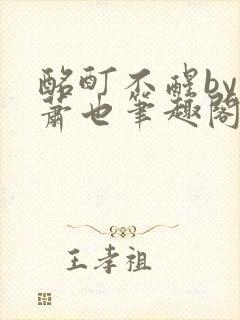 酩酊不醒by
萧也笔趣阁
王孝祖